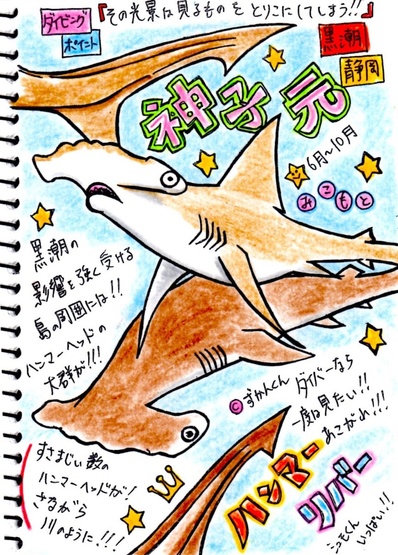 『その光景は見るものをとりこにしてしまう!!』
ダイビング
ポイント
黒潮
静岡
神子元
6月〜10月
みこもと
黒潮の
影響を強く受ける
島の周囲には!!
ハンマーヘッドの
大群が!!!
©ずかんくん
ダイバーなら
一度は見たい!!
あこがれ!!!
すさまじい数の
ハンマーヘッドが!
さながら
川のように!!!
ハンマー
リバー
いっぱい!!